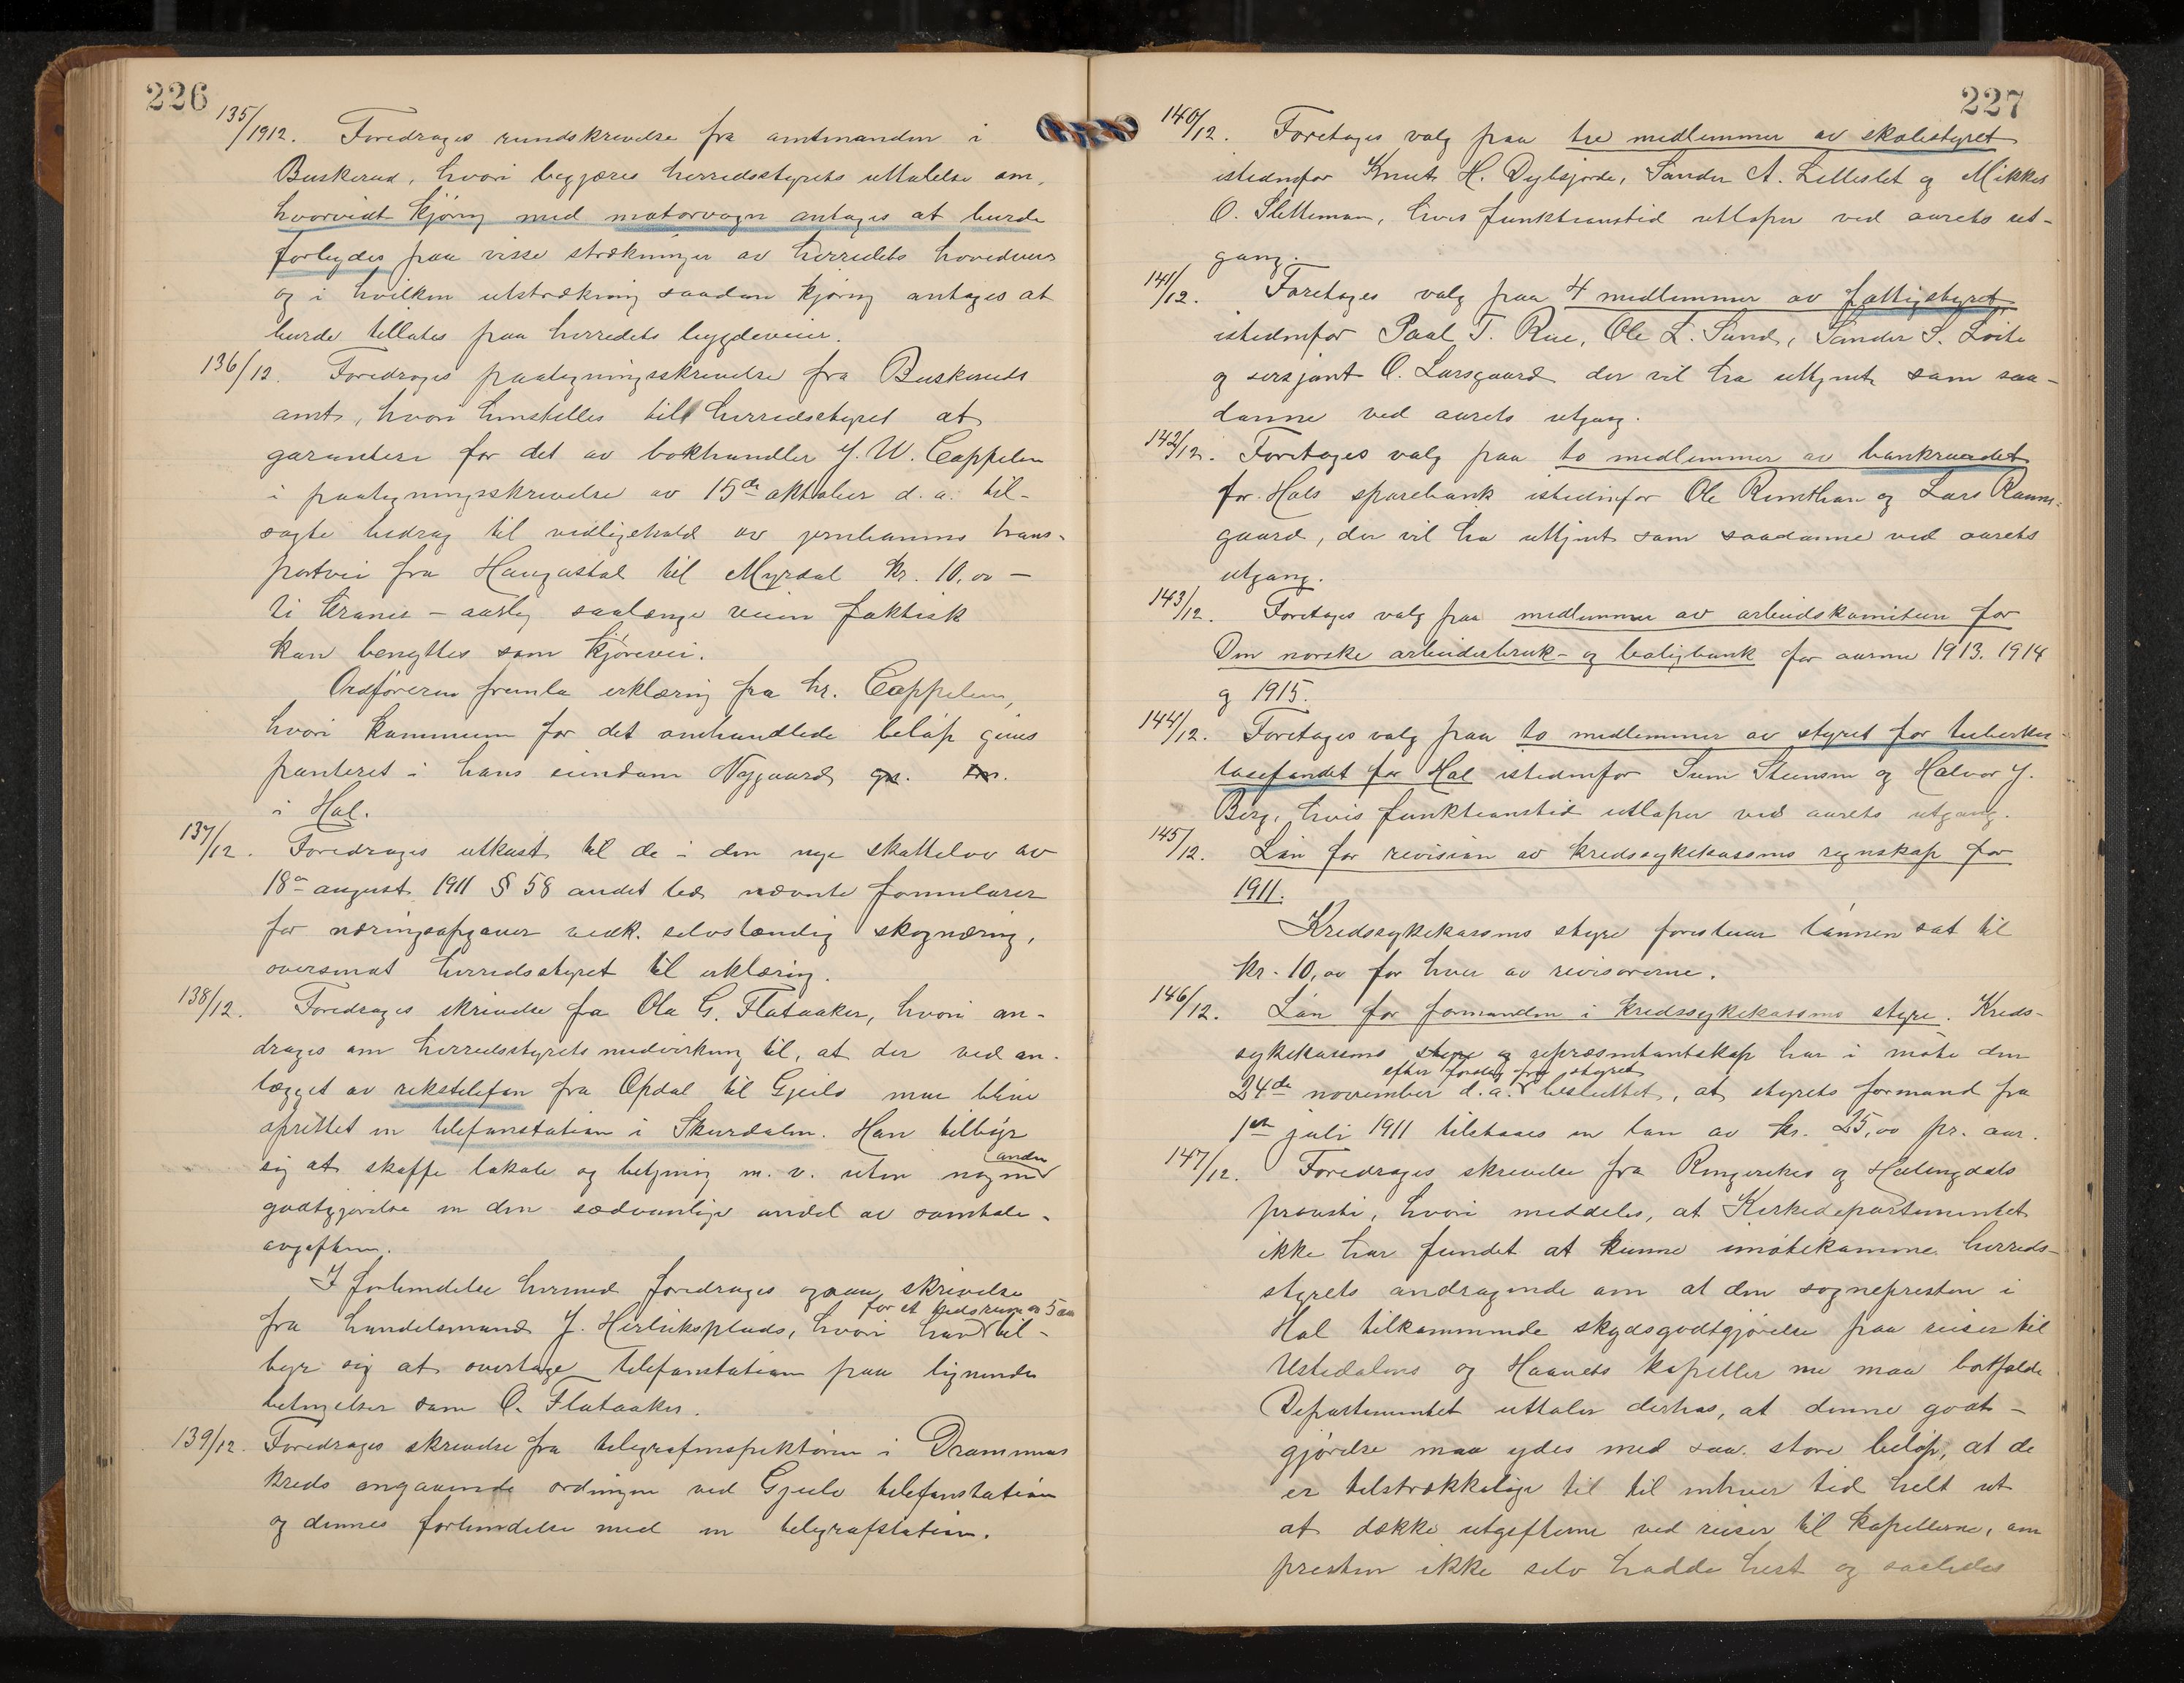 226
135/1912. Foredrages rundskrivelse fra amtmanden i
Buskerud, hvori begjæres herredsstyrets uttalelse om,
hvorvidt kjøring med motorvogn antages at burde
forbydes paa visse strækninger av herredets hovedveier
og i hvilken utstrækning saadan kjøring antages at
burde tillates paa herredets bygdeveier.
136/12. Foredrages paategningsskrivelse fra Buskeruds
amt, hvori henstilles till herredsstyret at
garantere for det av bokhandler J. W. Cappelen
i paategningsskrivelse av 15de oktober d. a. til-
sagte bidrag til vedligehold av jernbanens trans-
portvei fra Haugastøl til Myrdal kr. 10,00 —
ti kroner — aarlig saalænge veien faktisk
kan benyttes som kjørevei.
Ordføreren fremla erklæring fra hr. Cappelen,
hvori kommunen for det omhandlede beløp gives
panteret i hans eiendom Nygaard gr. br.
i Hol.
137/12. Foredrages utkast til de i den nye skattelov av
18de august 1911 § 58 andet led nævnte formularer
for næringsopgaver vedk. selvstændig skognæring,
oversendt herredsstyret til erklæring.
138/12. Foredrages skrivelse fra Ola G. Flataaker, hvori an-
drages om herredsstyrets medvirkning til, at der ved an-
lægget av rikstelefon fra Opdal til Gjeilo maa blive
oprettet en telefonstation i Skurdalen. Han tilbyr
sig at skaffe lokale og betjening m. v. uten nogen
anden
godtgjørelse en den sædvanlige andel av samtale-
avgiften.
I forbindelse hermed foredrages ogsaa skrivelse
for et tidsrum av 5 aar
fra handelsmand J. Herbiksplads, hvori han til-
byr sig at overtage telefonstation paa lignende
betingelser som O. Flataaker.
139/12. Foredrages skrivelse fra telegrafinspektøren i Drammens
kreds angaaende ordningen ved Gjeilo telefonstation
og dennes forbindelse med en telegrafstation.
227
140/12. Foretages valg paa tre medlemmer av skolestyret
istedenfor Knut H. Dylsjorde, Sander A. Lilleslet og Mikkel
O. Slettemoen, hvis funktionstid utløper ved aarets ut-
gang.
141/12. Foretages valg paa 4 medlemmer av fattigstyret
istedenfor Paal T. Rue, Ole L. Sund, Sander S. Løite
og sersjant O. Larsgaard der vil ha uttjent som saa-
danne ved aarets utgang.
142/12. Foretages valg paa to medlemmer av bankraadet
for Hols sparebank istedenfor Ole Rimthun og Lars Raun-
gaard, der vil ha uttjent som saadanne ved aarets
utgang.
143/12. Foretages valg paa medlemmer av arbeidskomiteen for
Den norske arbeiderbruk- og boligbank for aarene 1913. 1914
og 1915.
144/12. Foretages valg paa to medlemmer av styret for tuberku-
losefondet for Hol istedenfor Svein Steinsen og Halvor J.
Berg, hvis funktionstid utløper ved aarets utgang.
145/12. Løn for revision av kredssykekassens regnskap for
1911.
Kredssykekassens styre foreslaar lønnen sat til
kr. 10,00 for hver av revisorerne.
146/12. Løn for formanden i kredssykekassens styre. Kreds-
sykekassens styre og repræsentantskap har i møte den
efter forslag fra styret
24de november d. a. besluttet, at styrets formand fra
1ste juli 1911 tilstaaes en løn av kr. 25,00 pr. aar.
147/12. Foredrages skrivelse fra Ringerikes og Hallingdals
provsti, hvori meddeles, at Kirkedepartementet
ikke har fundet at kunne imøtekomme herreds-
styrets andragende om at den sognepresten i
Hol tilkommende skydsgodtgjørelse paa reiser til
Ustedalens og Haavets kapeller nu maa bortfalde.
Departementet uttaler derhos, at denne godt-
gjørelse maa ydes med saa store beløp, at de
er tilstrækkelige til til enhver tid helt ut
at dække utgifterne ved reiser til kapellerne, om
presten ikke selv hadde hest og saaledes